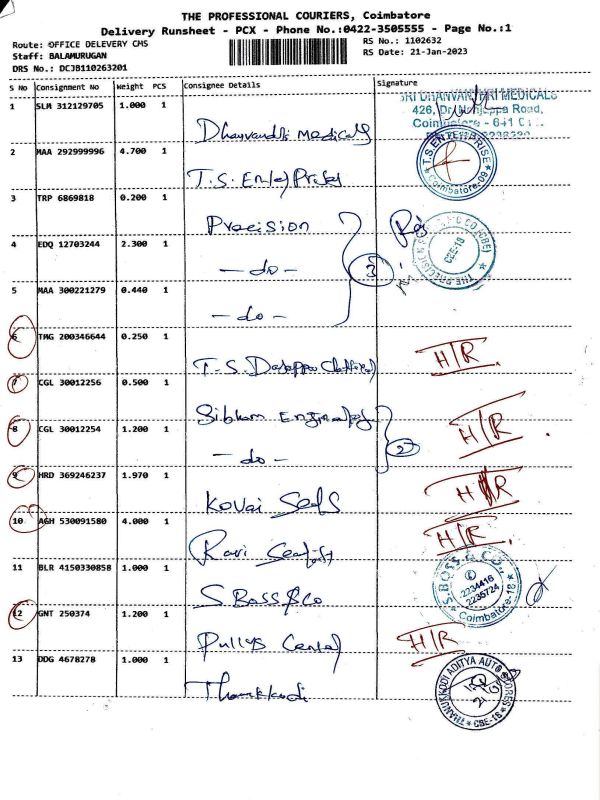 THE PROFESSIONAL COURIERS, Coimbatore
Delivery Runsheet - PCX - Phone No.:0422-3505555 - Page No.:1
Route: OFFICE DELEVERY CMS
RS No.: 1102632
Staff: BALAMURUGAN
RS Date: 21-Jan-2023
DRS No.: DCJB110263201
S No Consignment No Weight PCS Consignee Details Signature
1 SLM 312129705 1.000 1
SRI DHANVANTHRI MEDICALS
426, Dr. Nanjappa Road,
Coimbatore - 641
Dhanvandri Medicals
2 MAA 292999996 4.700 1
T.S. ENTERPRISE
Coimbatore-09
T.S. Enterprises
3 TRP 6869818 0.200 1
Precision
THE PRECISION CO (CBE)
CBE-18
4 EDQ 12703244 2.300 1
- do - 3
5 MAA 300221279 0.440 1
- do -
6 TMG 200346644 0.250 1
T.S. H/R
7 CGL 30012256 0.500 1
8 CGL 30012254 1.200 1 H/R
- do - 2
9 HRD 369246237 1.970 1 H/R
Kovai Seals
10 AGH 530091580 4.000 1 H/R
Ravi
11 BLR 4150330858 1.000 1
S. BOSS & CO.
2234416
2235724
Coimbatore-18
S. Boss & Co
12 GNT 250374 1.200 1 H/R
Pullys Center
13 DDG 4678278 1.000 1
THANUKKODI ADITYA AUTO STORES
CBE-18